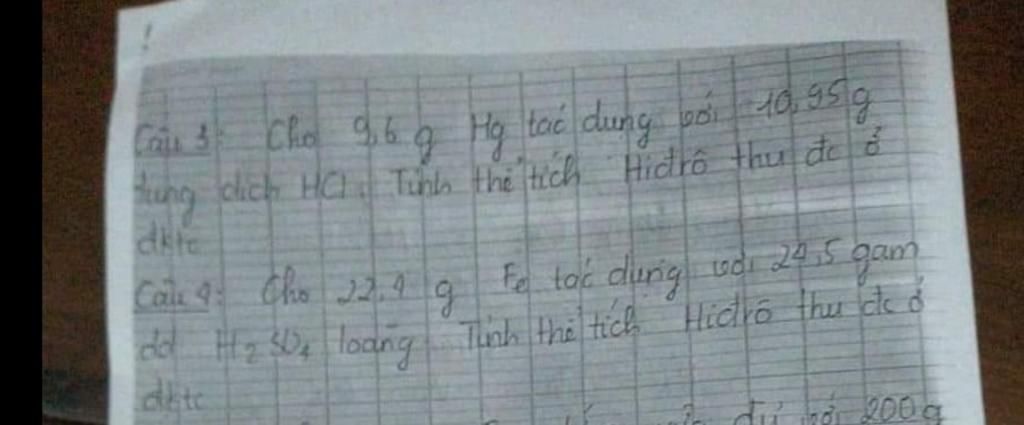 Câu 3: Cho 9,6 g Hg tác dụng với 10,95 g
dung dịch HCl. Tính thể tích Hiđrô thu đc ở
đktc
Câu 4: Cho 22,4 g Fe tác dụng với 24,5 gam
dd H2SO4 loãng Tính thể tích Hiđrô thu đc ở
đktc
đủ với 200g